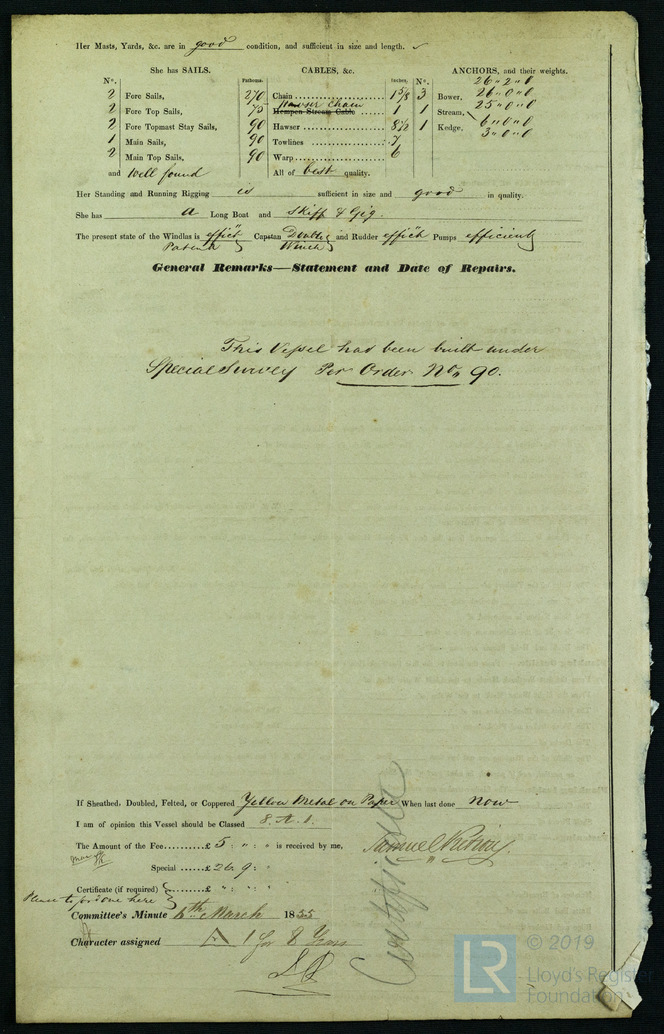 Her Masts, Yards, &c. are in good condition, and sufficient in size and length.
She has SAILS. CABLES, &c. ANCHORS, and their weights.
N°. Fathoms. Inches. N°. 26 " 2 " 0
2 Fore Sails, 270 Chain 1 5/8 3 Bower, 26 " 0 " 0
Hawser Chain 25 " 0 " 0
2 Fore Top Sails, 75 Hempen Stream Cable 1 1 Stream,
2 Fore Topmast Stay Sails, 90 Hawser 8 1/2 1 Kedge, 6 " 0 " 0
1 Main Sails, 90 Towlines 7 3 " 0 " 0
2 Main Top Sails, 90 Warp 6
and Well found All of best quality.
Her Standing and Running Rigging is sufficient in size and good in quality.
She has a Long Boat and Skiff & Gig.
The present state of the Windlas is effict Capstan Double and Rudder effict Pumps efficient
Patent Winch
General Remarks—Statement and Date of Repairs.
This Vessel had been built under
Special Survey Per Order No. 90.
If Sheathed, Doubled, Felted, or Coppered Yellow Metal on Paper When last done Now
I am of opinion this Vessel should be Classed 8. A. 1.
The Amount of the Fee......£ 5 : " : " is received by me, Samuel
Special ......£ 26. 9 : "
Certificate (if required) ......£ " : " : "
Please to be done here
Committee's Minute 6th March 1855
Character assigned A 1 for 8 Years
Certificate
LR © 2019
Lloyd's Register
Foundation